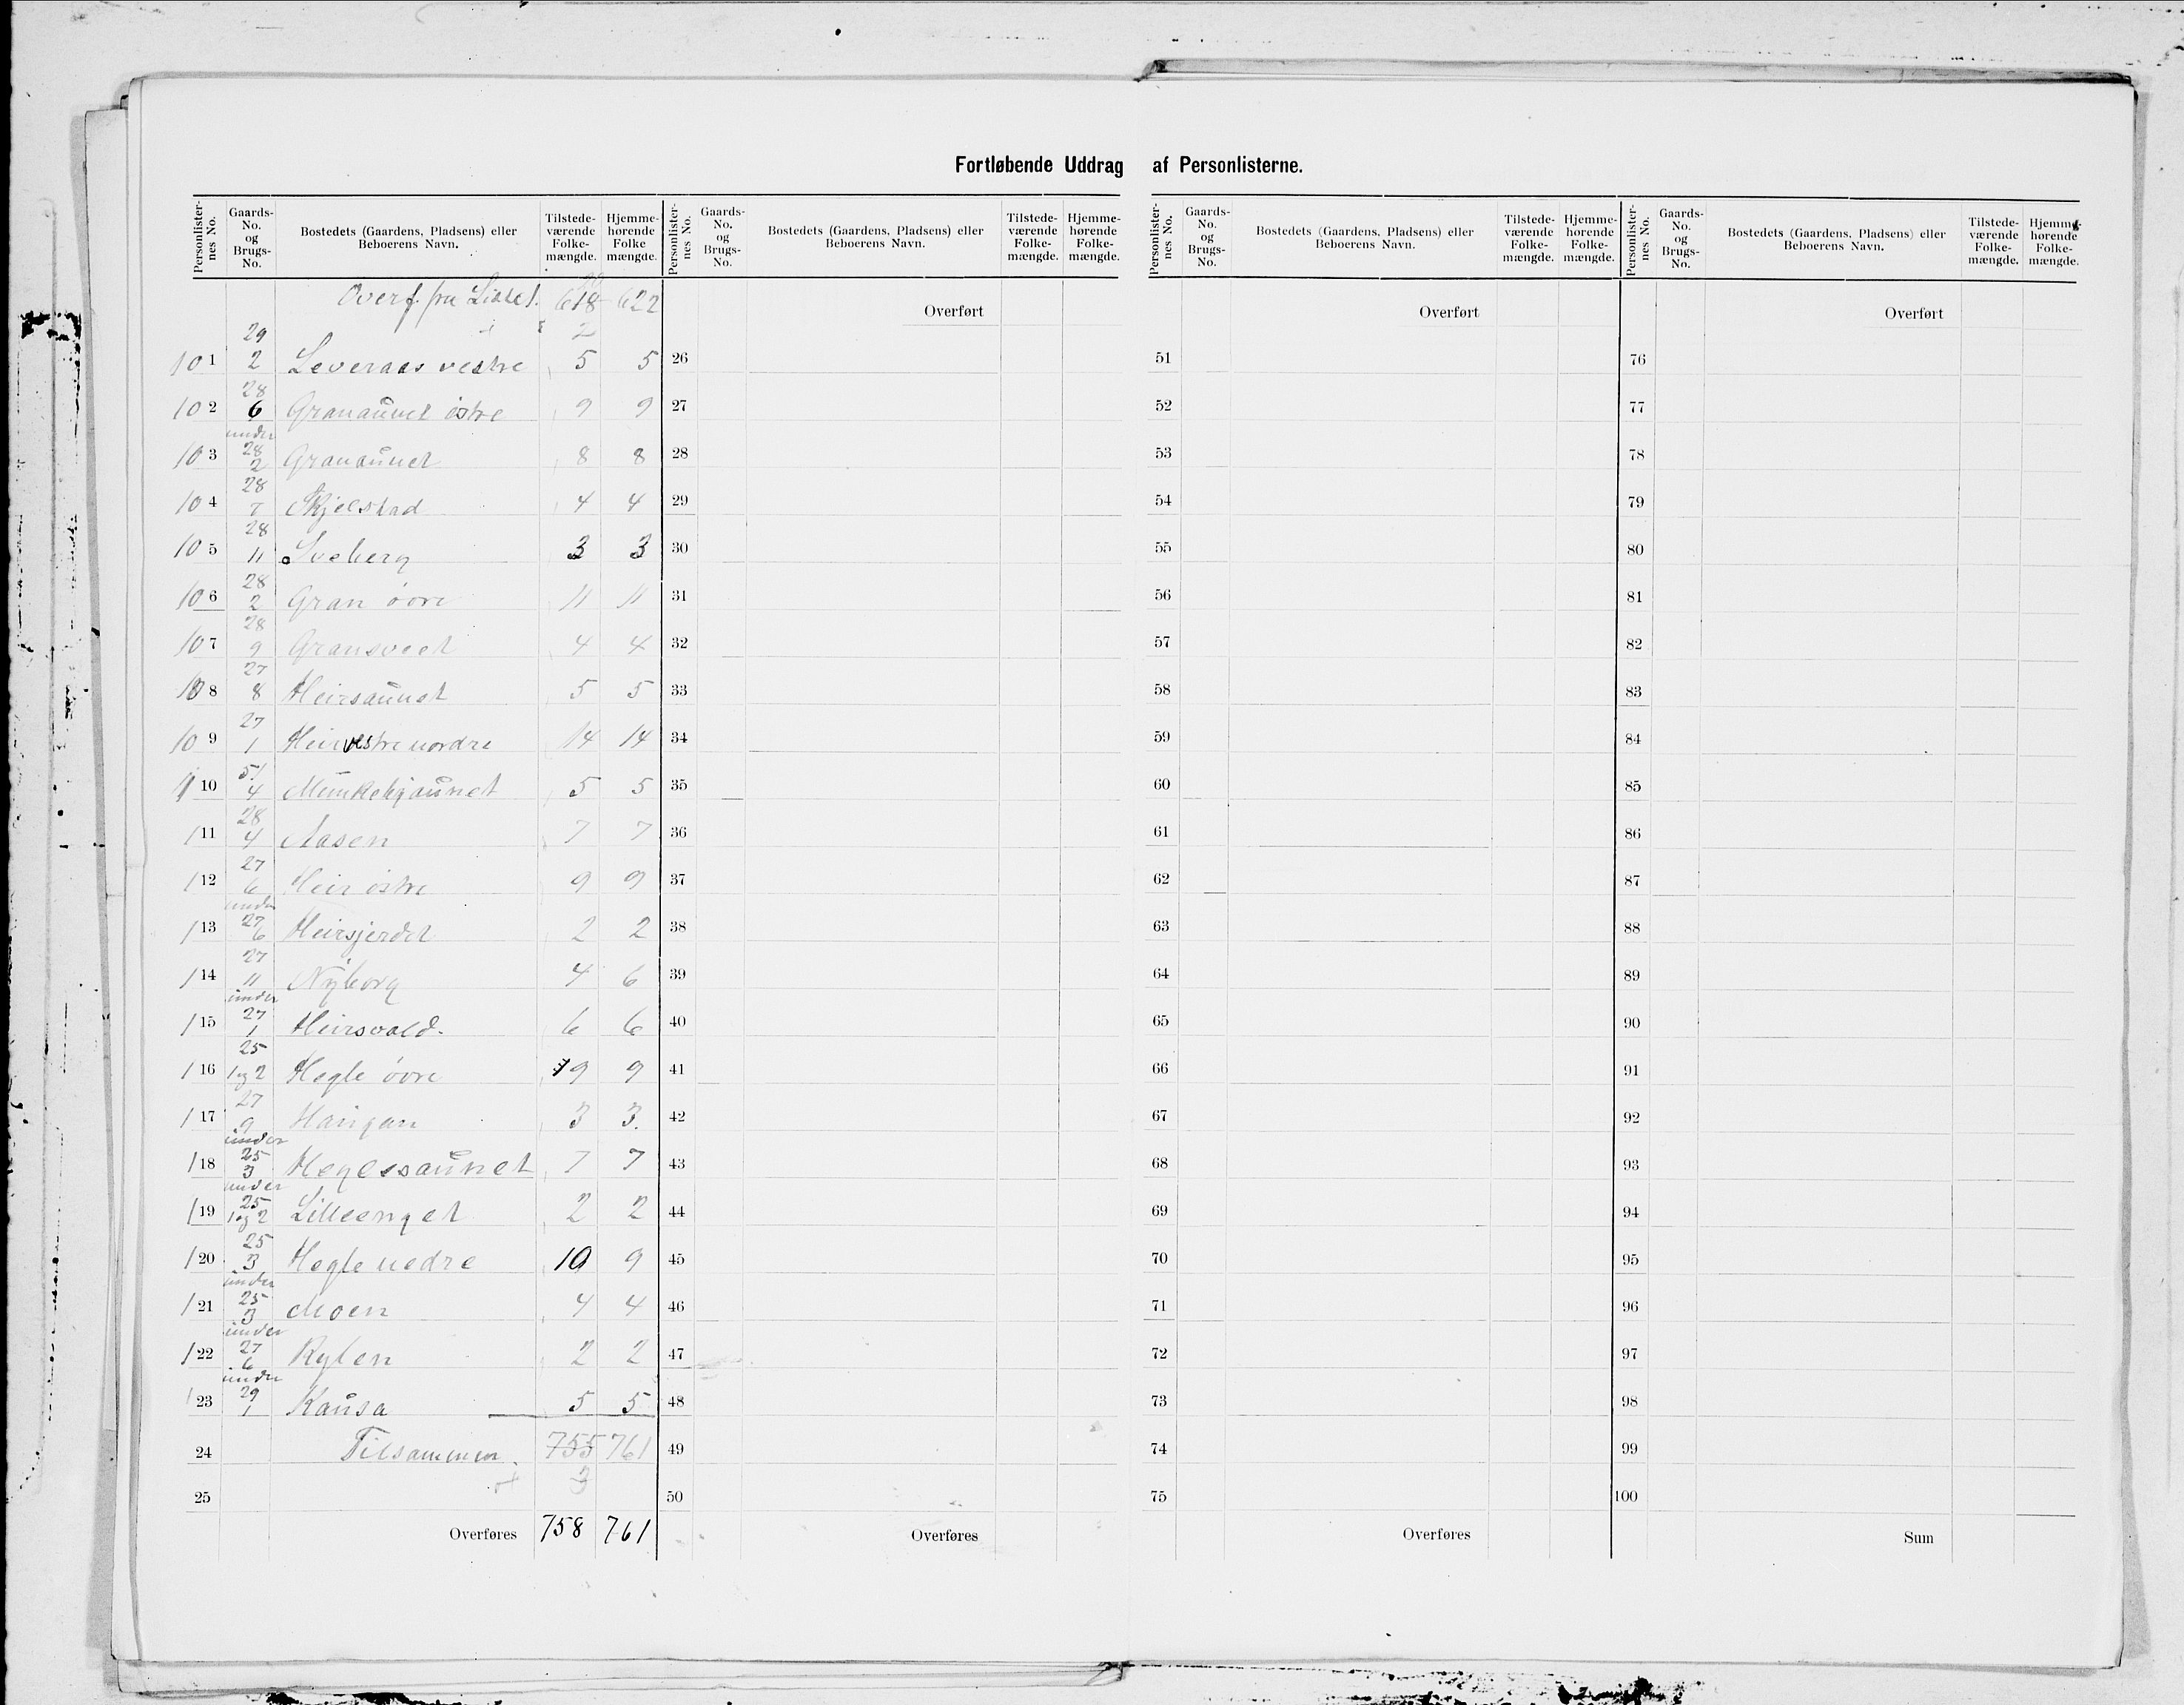 Fortløbende Uddrag af Personlisterne.
Personlisternes No. Gaards-No. og Brugs-No. Bostedets (Gaardens, Pladsens) eller Beboerens Navn. Tilstedeværende Folkemængde. Hjemmehørende Folkemængde.
Overf. fra 618 622
2
101 29/2 Leveraas vestre 5 5
102 28/6 Granaunet östre 9 9
103 under 28/2 Granaunet 8 8
104 28/7 Skjelstad 4 4
105 28/11 Sveberg 3 3
106 28/2 Gran övre 11 11
107 28/9 Gransveet 4 4
108 27/8 Heirsaunet 5 5
109 27/1 Heir vestre nordre 14 14
110 51/4 Munkebyaunet 5 5
111 28/4 Aasen 7 7
112 27/6 Heir östre 9 9
113 under 27/6 Heirsjerdet 2 2
114 27/11 Nyborg 4 6
115 under 27/1 Heirsvald. 6 6
116 25/1 og 2 Hegle övre 9 9
117 27/9 Haugan 3 3.
118 under 25/3 Heglesaunet 7 7
119 under 25/1 og 2 Lilleenget 2 2
120 25/3 Hegle nedre 10 9
121 under 25/3 Moen 4 4
122 under 27/6 Rylen 2 2
123 under 29/1 Kausa 5 5
24 Tilsammen 755 761
25 + 3
Overføres 758 761
Personlisternes No. Gaards-No. og Brugs-No. Bostedets (Gaardens, Pladsens) eller Beboerens Navn. Tilstedeværende Folkemængde. Hjemmehørende Folkemængde.
Overført
26
27
28
29
30
31
32
33
34
35
36
37
38
39
40
41
42
43
44
45
46
47
48
49
50
Overføres
Personlisternes No. Gaards-No. og Brugs-No. Bostedets (Gaardens, Pladsens) eller Beboerens Navn. Tilstedeværende Folkemængde. Hjemmehørende Folkemængde.
Overført
51
52
53
54
55
56
57
58
59
60
61
62
63
64
65
66
67
68
69
70
71
72
73
74
75
Overføres
Personlisternes No. Gaards-No. og Brugs-No. Bostedets (Gaardens, Pladsens) eller Beboerens Navn. Tilstedeværende Folkemængde. Hjemmehørende Folkemængde.
Overført
76
77
78
79
80
81
82
83
84
85
86
87
88
89
90
91
92
93
94
95
96
97
98
99
100
Sum